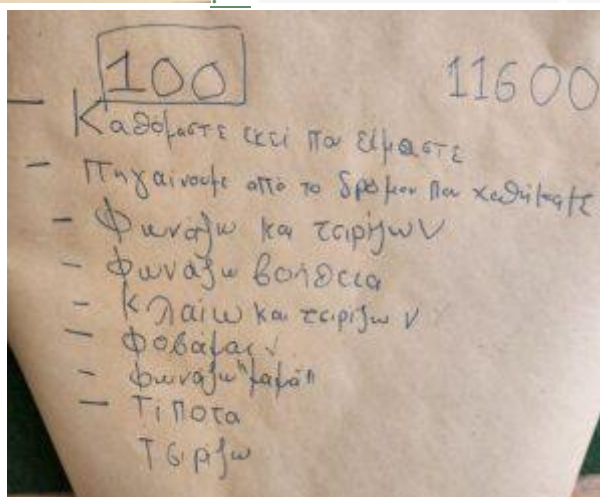 100 11600
- Καθόμαστε εκεί που είμαστε
- Πηγαίνουμε από το δρόμον που χαθήκαμε
- Φωνάζω και τσιρίζω √
- Φωνάζω βοήθεια
- Κλαίω και τσιρίζω √
- Φοβάμαι √
- Φωνάζω "μαμά"
- Τίποτα
Τσιρίζω